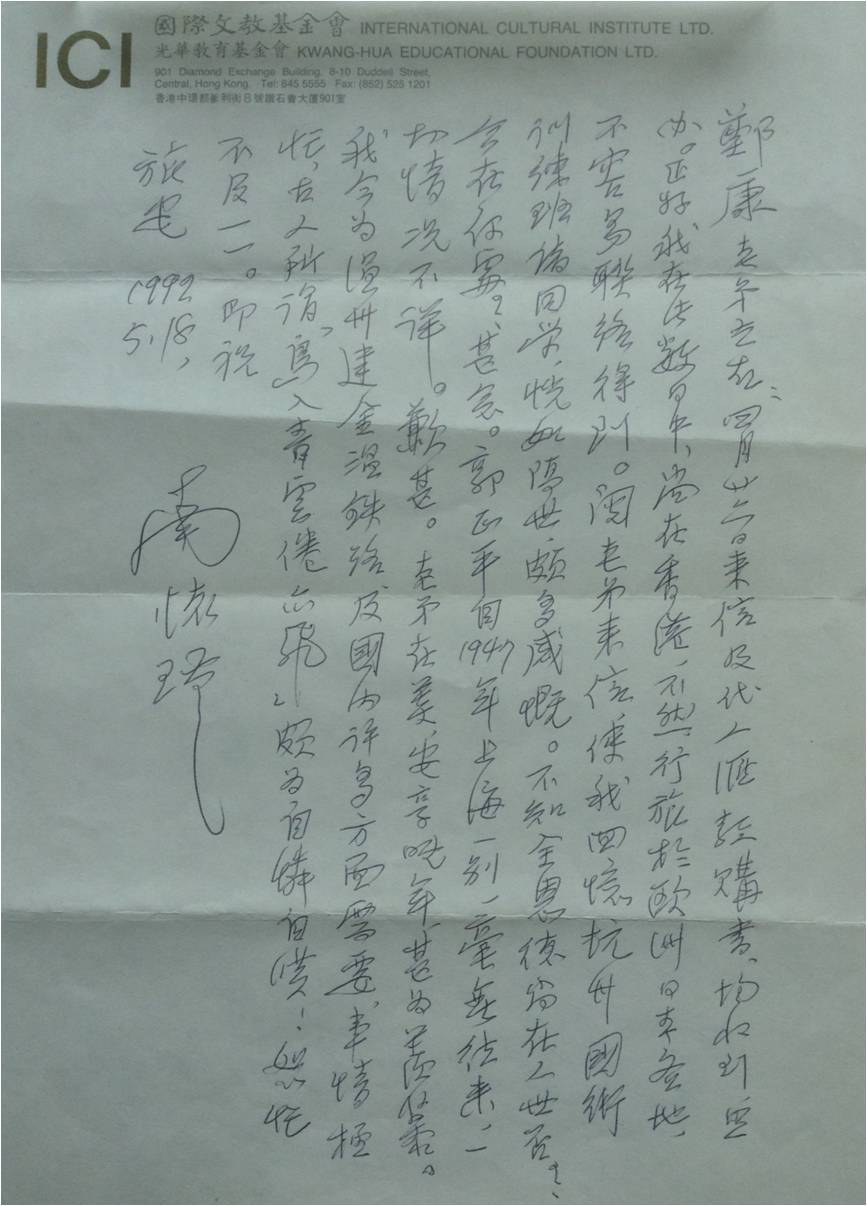 ICI
國際文教基金會 INTERNATIONAL CULTURAL INSTITUTE LTD.
光華教育基金會 KWANG-HUA EDUCATIONAL FOUNDATION LTD.
901 Diamond Exchange Building, 8-10 Duddell Street,
Central, Hong Kong. Tel: 845 5555 Fax: (852) 525 1201
香港中環都爹利街8號鑽石會大廈901室
鄭康老弟左右：四月廿六日來信及代人匯款購書，均收到無
誤。正好我在此數日中，尚在香港，不然，行旅於歐洲日本各地，
不容易聯絡得到。閱老弟來信，使我回憶杭州國術
訓練班諸同學，恍如隔世，頗多感慨。不知全恩德尚在人世否？
今在何處？甚念。郭正平自1947年上海一別，毫無往來，一
切情況不詳。歉甚。老弟在美，安享晚年，甚為羨慕。
我今為溫州建金溫鐵路及國內許多方面需要，事情極
忙，古人所謂“鳥入青雲倦亦飛”頗為自憐自笑！匆忙
不及一一。即祝
旅安
1992
5.18.
南懷瑾